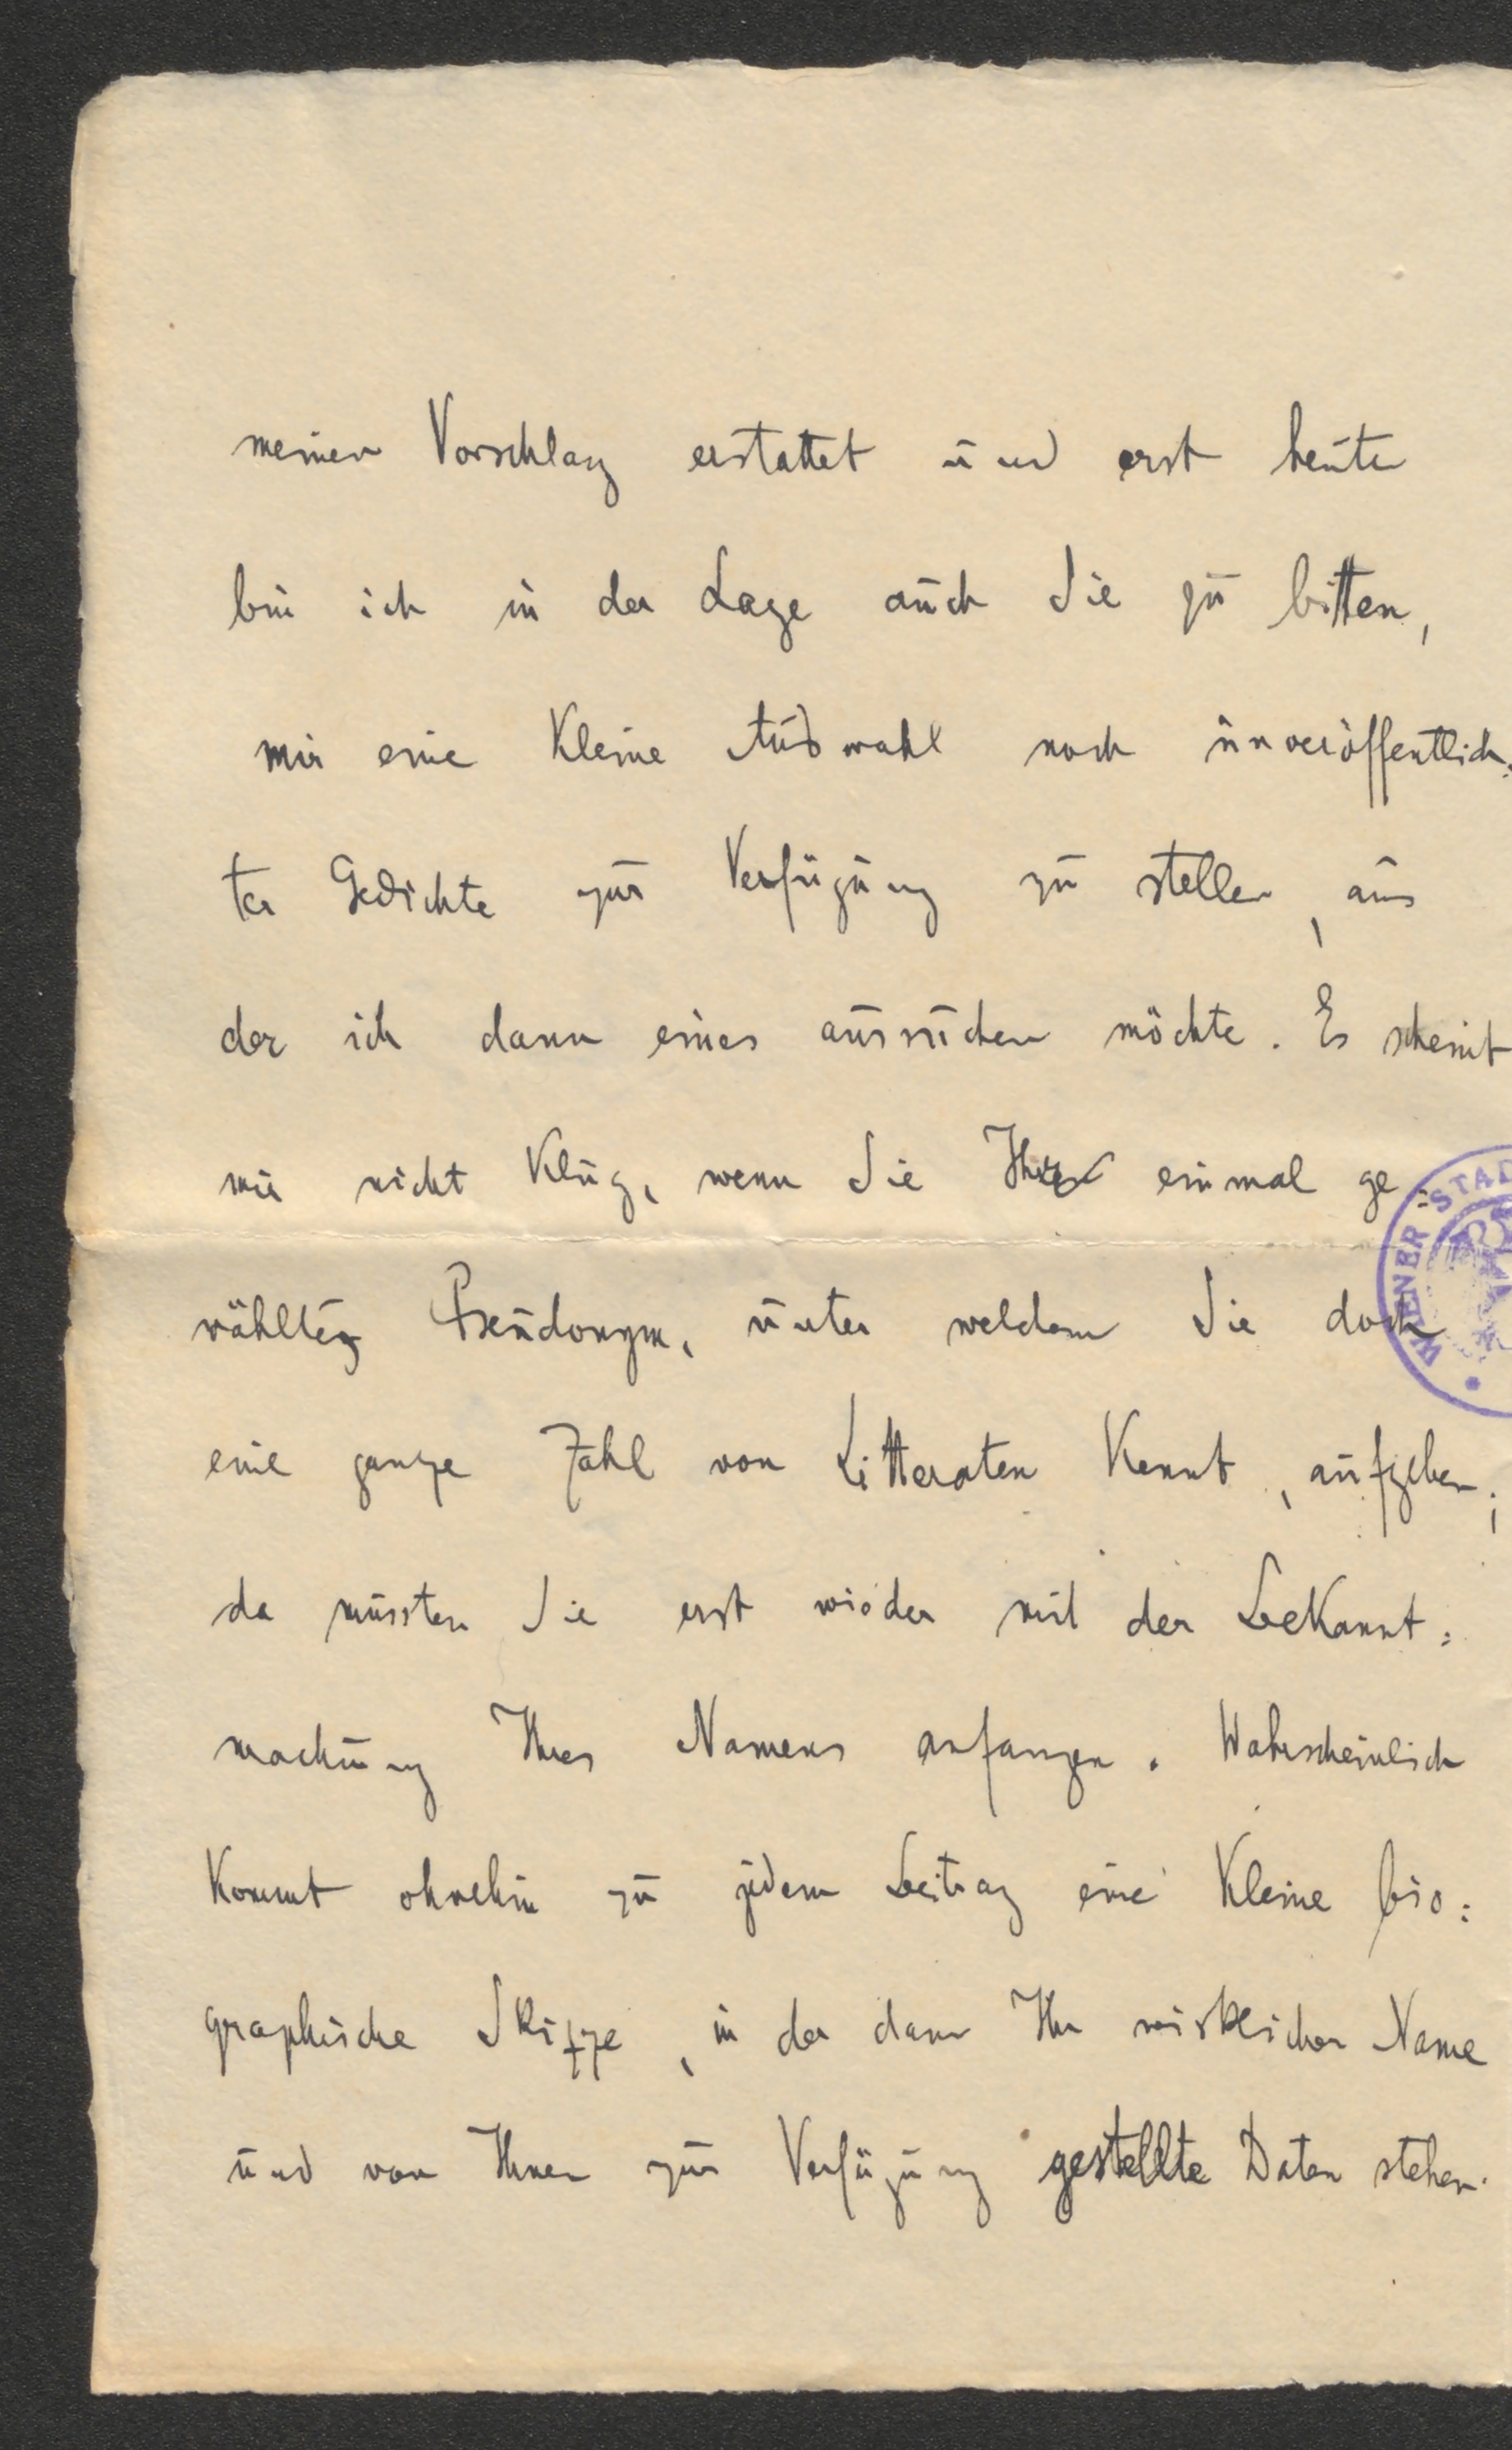 meinen Vorschlag erstattet und erst heute
bin ich in der Lage auch Sie zu bitten,
mir eine kleine Auswahl noch unveröffentlich=
ter Gedichte zur Verfügung zu stellen, aus
der ich dann eines aussuchen möchte. Es scheint
mir nicht klug, wenn Sie Ihr einmal ge=
wähltes Pseudonym, unter welchem Sie doch
eine ganze Zahl von Litteraten kennt, aufgeben;
da müssten Sie erst wieder mit der Bekannt=
machung Ihres Namens anfangen. Wahrscheinlich
kommt ohnehin zu jedem Beitrag eine kleine bio=
graphische Skizze, in der dann Ihr wirklicher Name
und von Ihnen zur Verfügung gestellte Daten stehen.
WIENER STAD